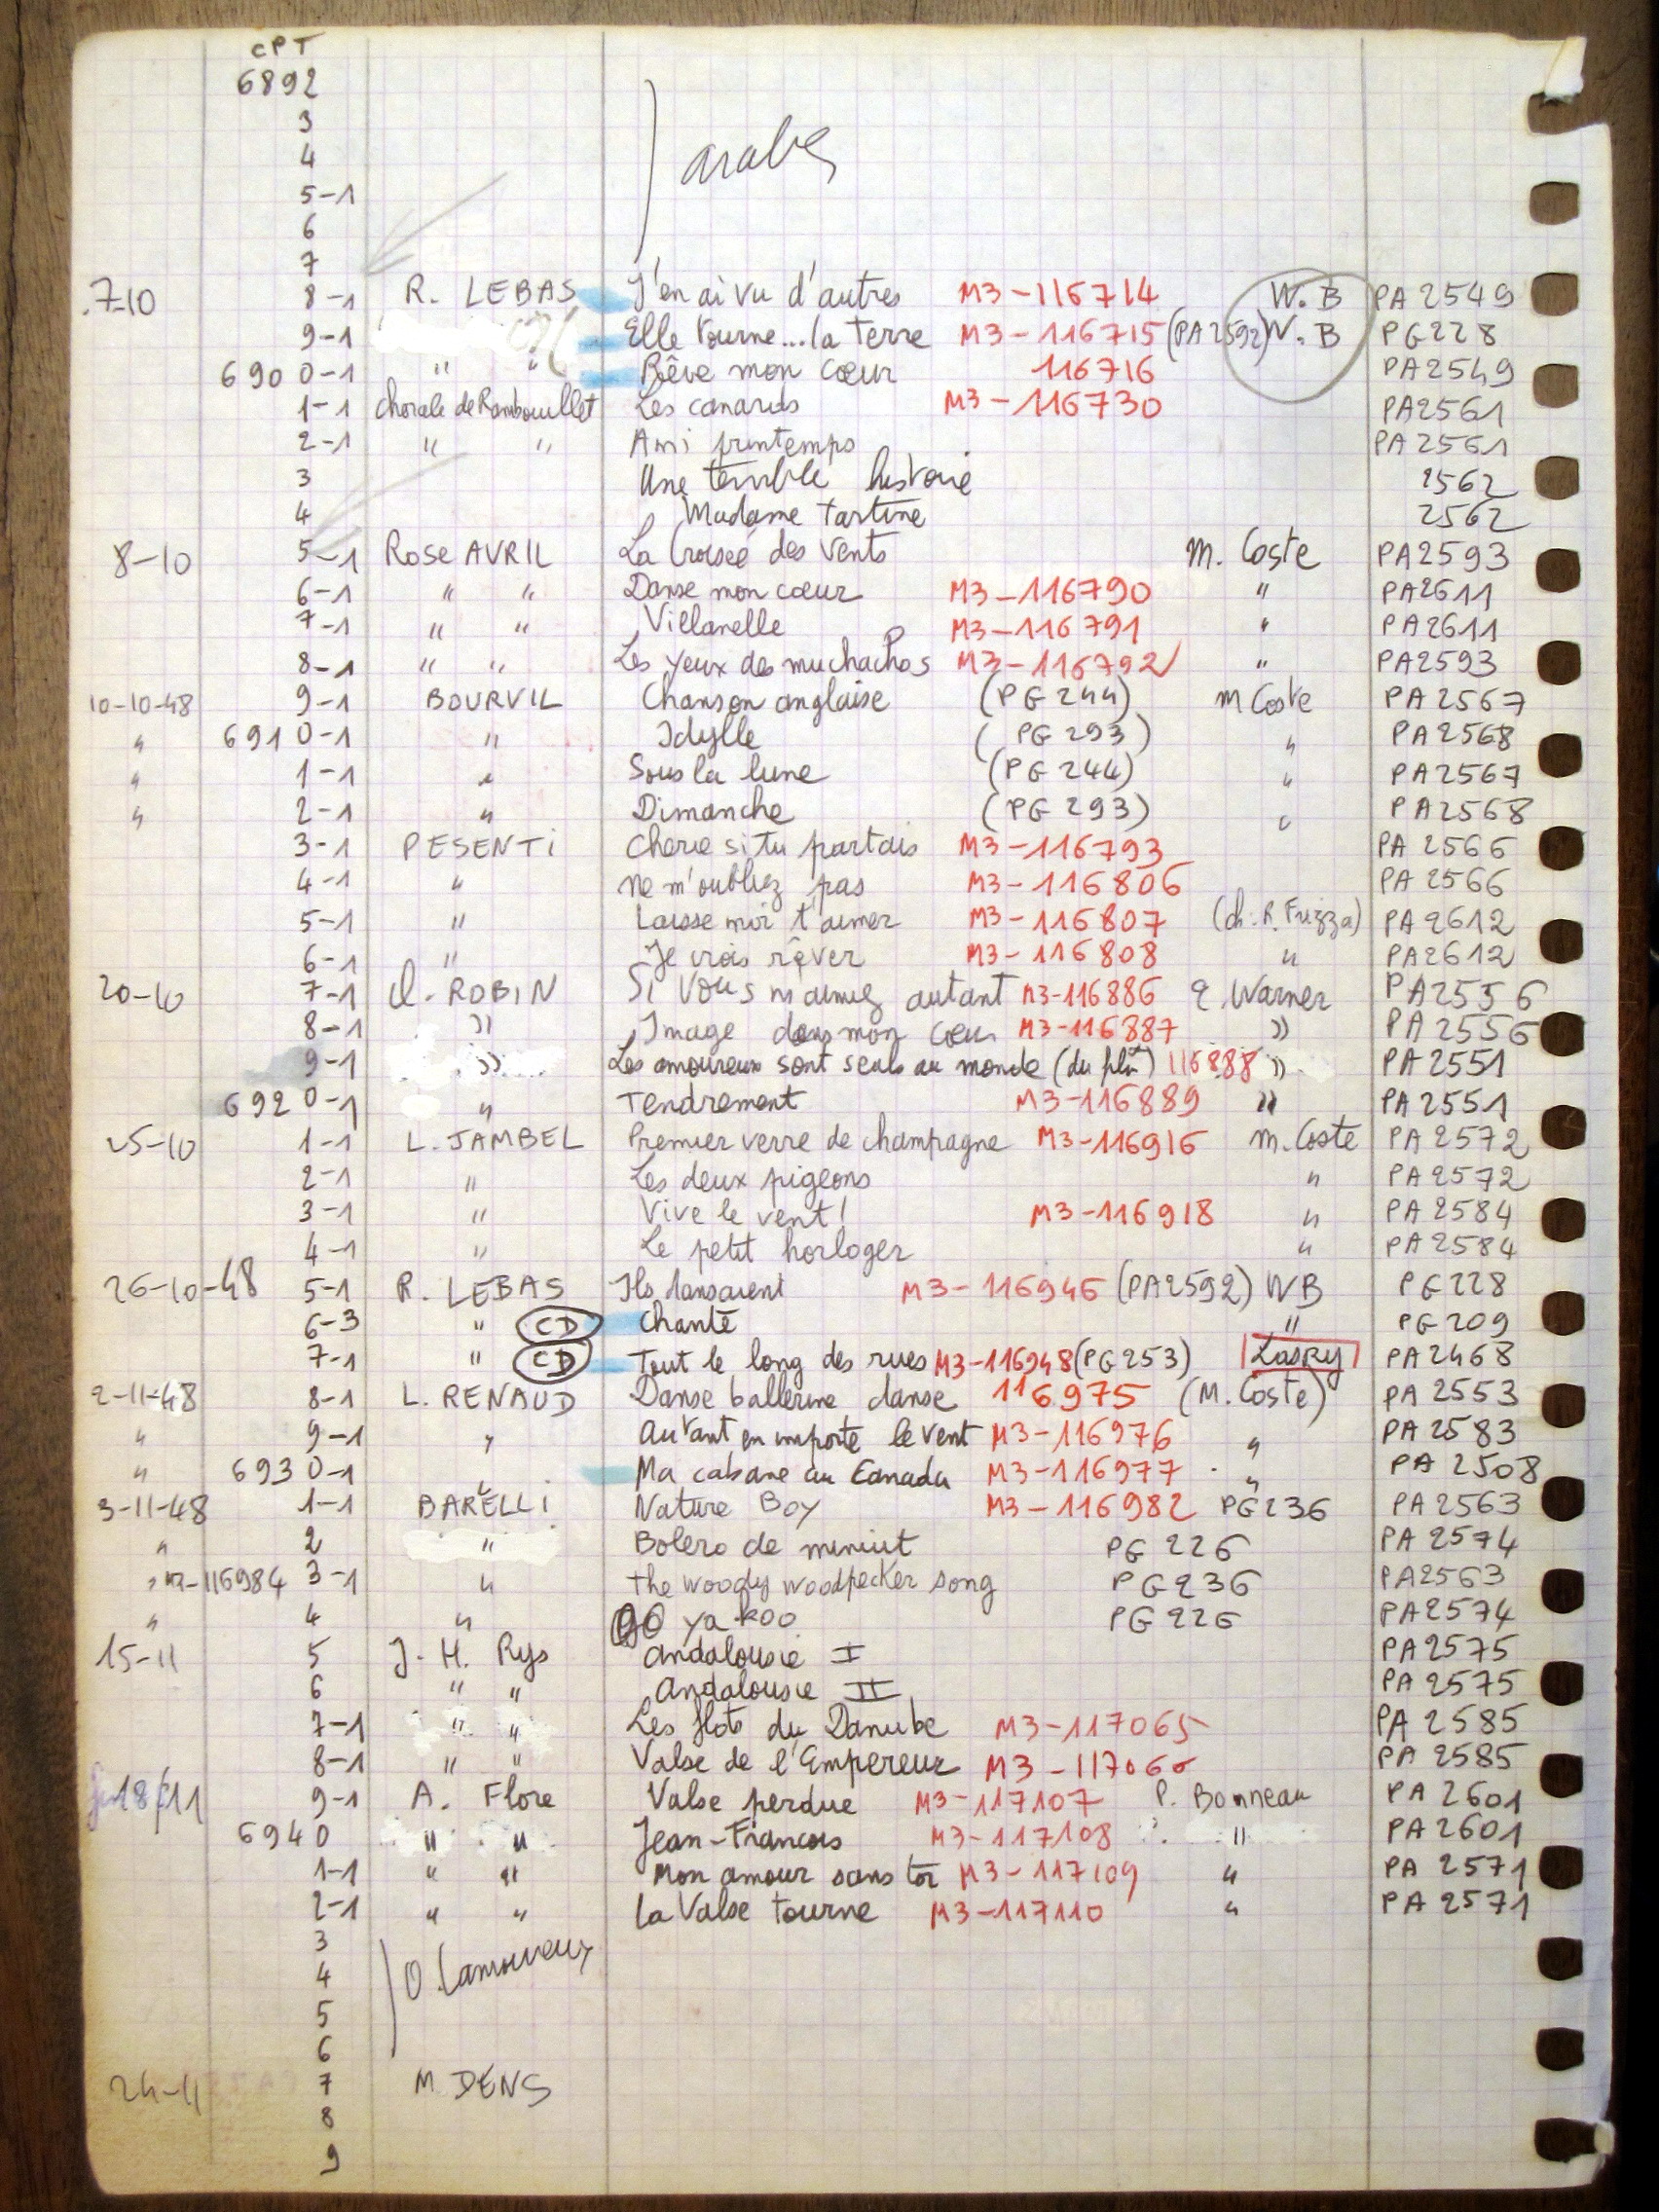 CPT
6892
3
4 arabes
5-1
6
7
.7-10 8-1 R. LEBAS J'en ai vu d'autres M3-116714 W.B PA 2549
9-1 Elle tourne...la terre M3-116715 (PA2592) W.B PG228
6900-1 " " Rêve mon cœur 116716 PA2549
1-1 Chorale de Rambouillet Les canards M3-116730 PA2561
2-1 " " Ami printemps PA2561
3 Une terrible histoire 2562
4 Madame Tartine 2562
8-10 5-1 Rose AVRIL La Croisée des Vents M. Coste PA2593
6-1 " " Danse mon cœur M3-116790 " PA2611
7-1 " " Villanelle M3-116791 " PA2611
8-1 " " Les yeux des muchachos M3-116792 " PA2593
10-10-48 9-1 BOURVIL Chanson anglaise (PG 244) M Coste PA2567
" 6910-1 " Idylle (PG 293) " PA2568
" 1-1 " Sous la lune (PG 244) " PA2567
" 2-1 " Dimanche (PG 293) " PA2568
3-1 PESENTi Cherie si tu partais M3-116793 PA 2566
4-1 " Ne m'oubliez pas M3-116806 PA 2566
5-1 " Laisse moi t'aimer M3-116807 (ch. R. Frizza) PA2612
6-1 " Je vais rêver M3-116808 " PA2612
20-10 7-1 D. ROBIN Si Vous m'aimiez autant M3-116886 E. Warner PA2556
8-1 " Image dans mon cœur M3-116887 " PA2556
9-1 " Les amoureux sont seuls au monde (du film) 116888 " PA2551
6920-1 " Tendrement M3-116889 " PA2551
25-10 1-1 L. JAMBEL Premier verre de champagne M3-116916 M. Coste PA 2572
2-1 " Les deux pigeons " PA 2572
3-1 " Vive le vent! M3-116918 " PA 2584
4-1 " Le petit horloger " PA 2584
26-10-48 5-1 R. LEBAS Ils dansaient M3-116946 (PA2592) WB PG228
6-3 " CD Chante " PG 209
7-1 " CD Tout le long des rues M3-116948 (PG253) Lasry PA2468
2-11-48 8-1 L. RENAUD Danse ballerine danse 116975 (M. Coste) PA 2553
" 9-1 " Autant en importe le vent M3-116976 " PA 2583
" 6930-1 " Ma cabane au Canada M3-116977 " PA 2508
3-11-48 1-1 BARELLi Nature Boy M3-116982 PG236 PA2563
" 2 " Bolero de minuit PG 226 PA 2574
" M3-116984 3-1 " The woody woodpecker song PG236 PA2563
" 4 " Go ya koo PG 226 PA2574
15-11 5 J. H. Rys Andalousie I PA2575
6 " " Andalousie II PA2575
7-1 " " Les flots du Danube M3-117065 PA 2585
8-1 " " Valse de l'Empereur M3-117066 PA 2585
18/11 9-1 A. Flore Valse perdue M3-117107 P. Bonneau PA 2601
6940 " " Jean-Francois M3-117108 " PA 2601
1-1 " " Mon amour sans toi M3-117109 " PA 2571
2-1 " " La Valse tourne M3-117110 " PA 2571
3
4 O. Lamoureux
5
6
24-11 7 M. DENS
8
9